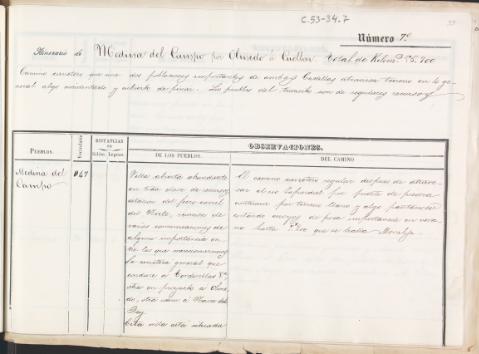 C.53-34.7
Número 7º
Itinerario de Medina del Campo por Olmedo á Cuellar Total de Kilóms 55.900
Camino carretero que une dos poblaciones importantes de ambas Castillas atraviesa terreno en lo ge
neral algo accidentado y cubierto de pinar. Los pueblos del transito son de regulares recursos
PUEBLOS.
Vecindario
DISTANCIAS EN
Kilóm. Leguas
OBSERVACIONES.
DE LOS PUEBLOS.
DEL CAMINO
Medina del
Campo
Villa abierta abundante
en toda clase de recursos
estacion del ferro-carril
del Norte, cruzero de
varias comunicaciones de
alguna importancia en
tre las que
la carretera general que
conduce á Tordesillas
otra en proyecto á Olme
do, otra
Esta villa está situada
El camino carretero regular despues de atrave
sar el rio Zapardiel por puente de piedra
continua por terreno llano y algo pantanoso
arroyos de poca importancia en vera
no hasta que se halla